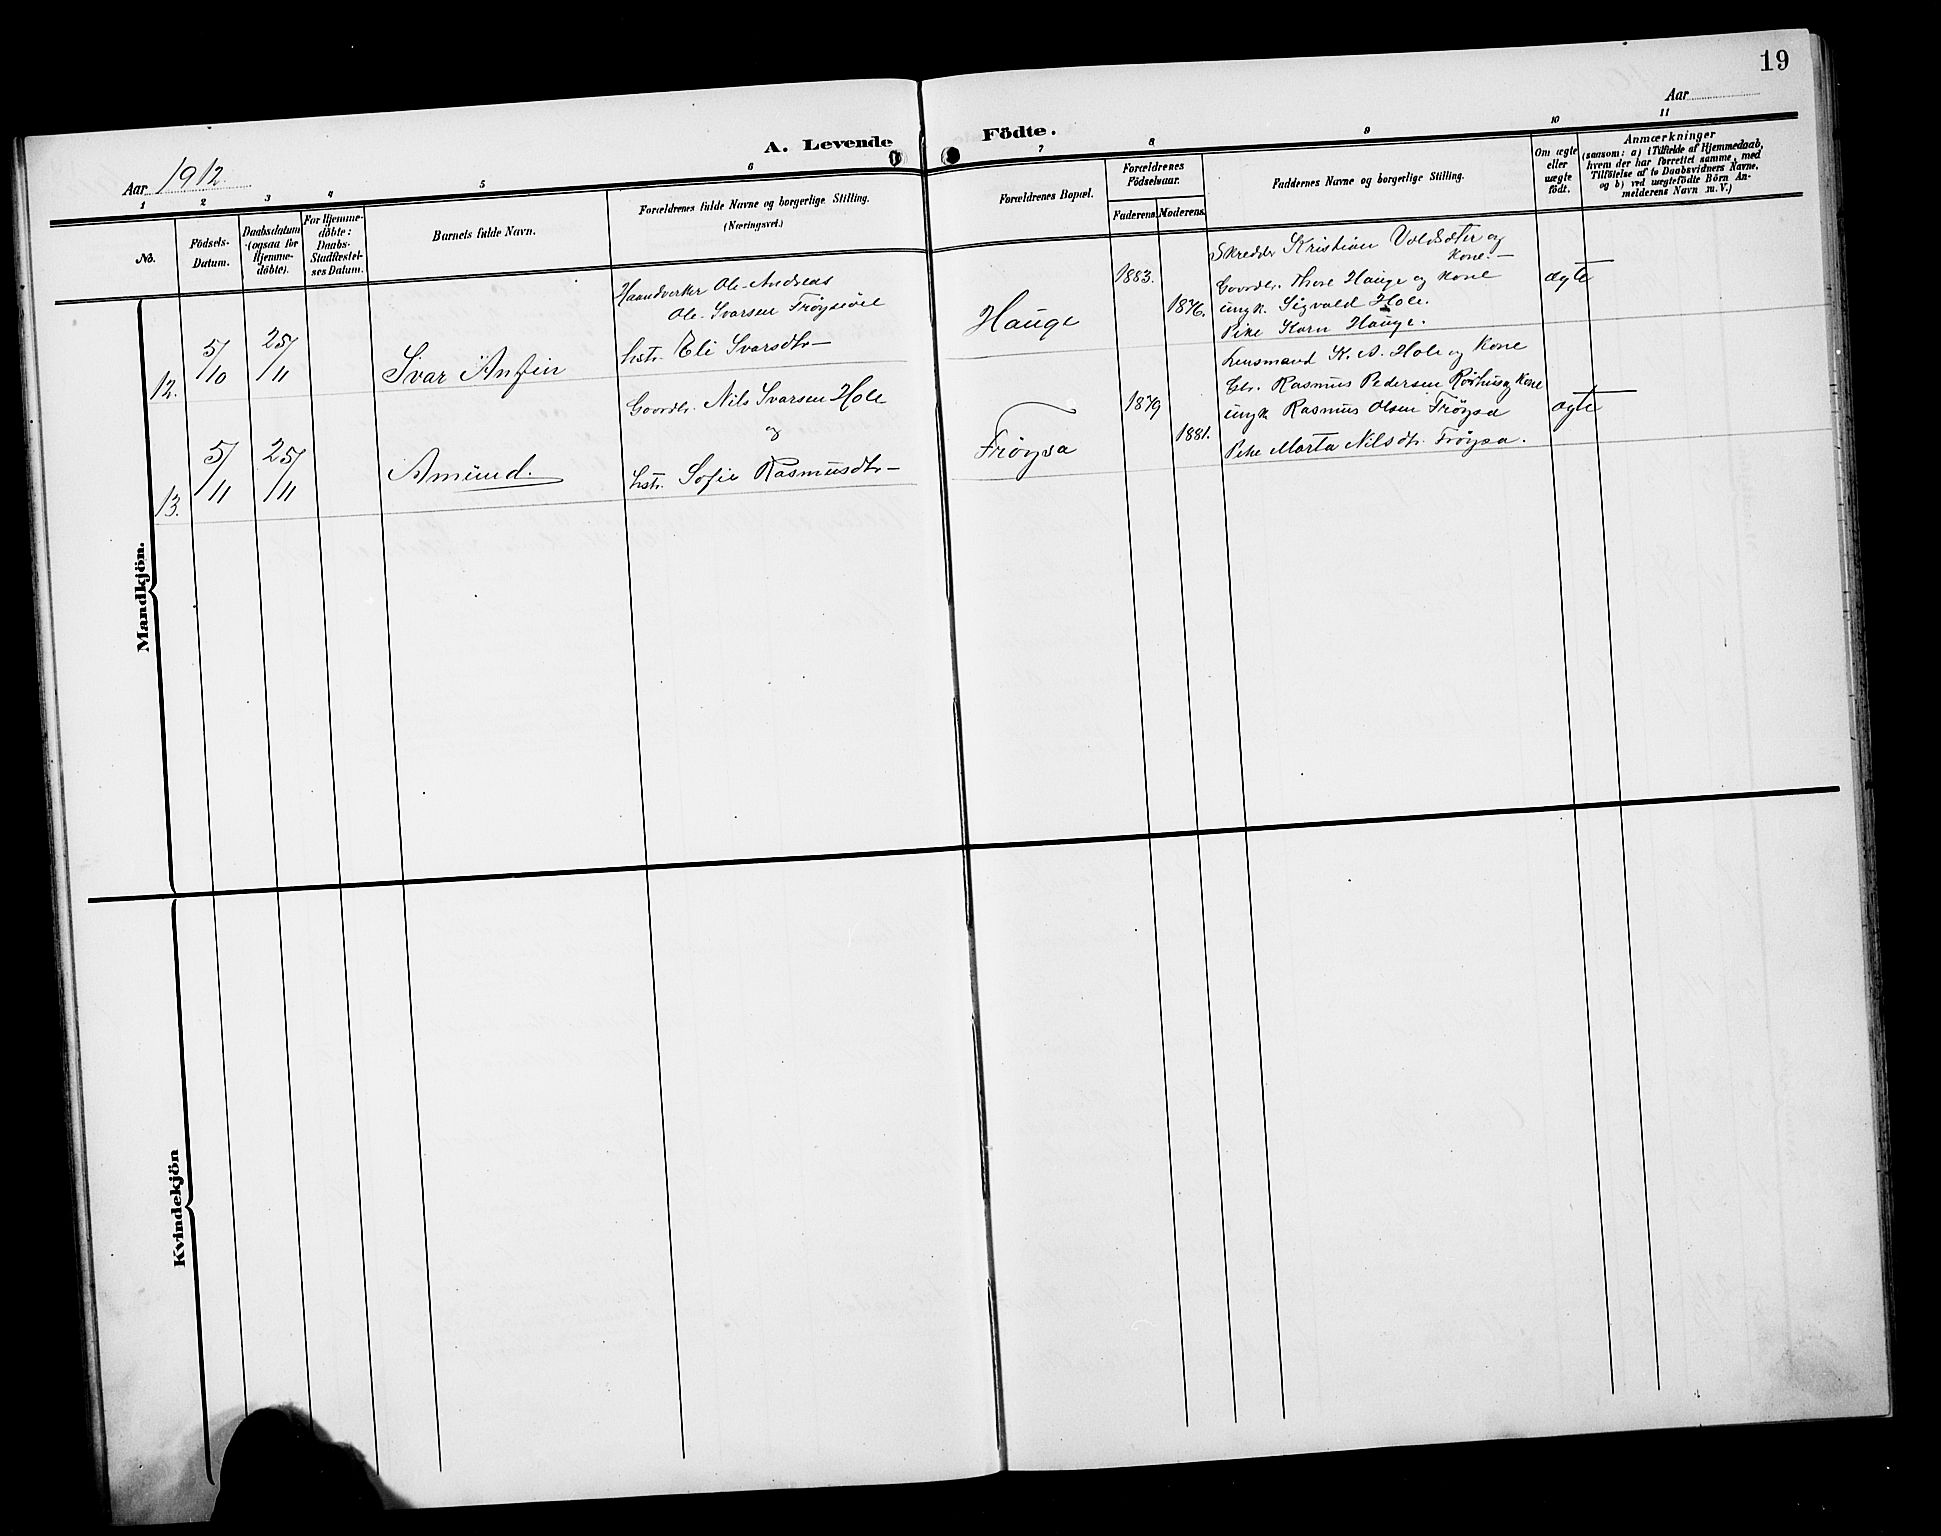 19
Aar
A. Levende Födte.
Aar 1912.
1 2 3 4 5 6 7 8 9 10 11
No.
Födsels-
Datum.
Daabsdatum
(ogsaa for
Hjemme-
döbte).
For Hjemme-
döbte:
Daabs-
Stadfæstel-
ses Datum.
Barnets fulde Navn.
Forældrenes fulde Navne og borgerlige Stilling.
(Næringsvei.)
Forældrenes Bopæl.
Forældrenes
Födselsaar.
Faderens. Moderens.
Faddernes Navne og borgerlige Stilling.
Om ægte
eller
uægte
födt.
Anmærkninger
(saasom: a) i Tilfælde af Hjemmedaab,
hvem der har forrettet samme, med
Tilföielse af to Daabsvidners Navne,
og b) ved uægtefödte Börn An-
melderens Navn m. V.)
Mandkjön.
12.
5/10
25/11
Ivar Anfin
Haandverker Ole Andreas
Ole Ivarsen
hstr. Eli Ivarsdtr
Hauge
1883.
1876.
Skredder Kristian og
Kone.
Gaardbr. Hauge og Kone
ungk. Sigvald Hole.
Pike Karn Hauge.
ægte
13.
5/11
25/11
Amund.
Gaardbr. Nils Ivarsen Hole
og
hstr. Sofie Rasmusdtr
Frøysa
1879
1881.
Lensmand K. A. Hole og Kone
Gbr. Rasmus Pedersen og Kone
ungk Rasmus Olsen Frøysa
Pike Marta Nilsdtr. Frøysa.
ægte
Kvindekjön